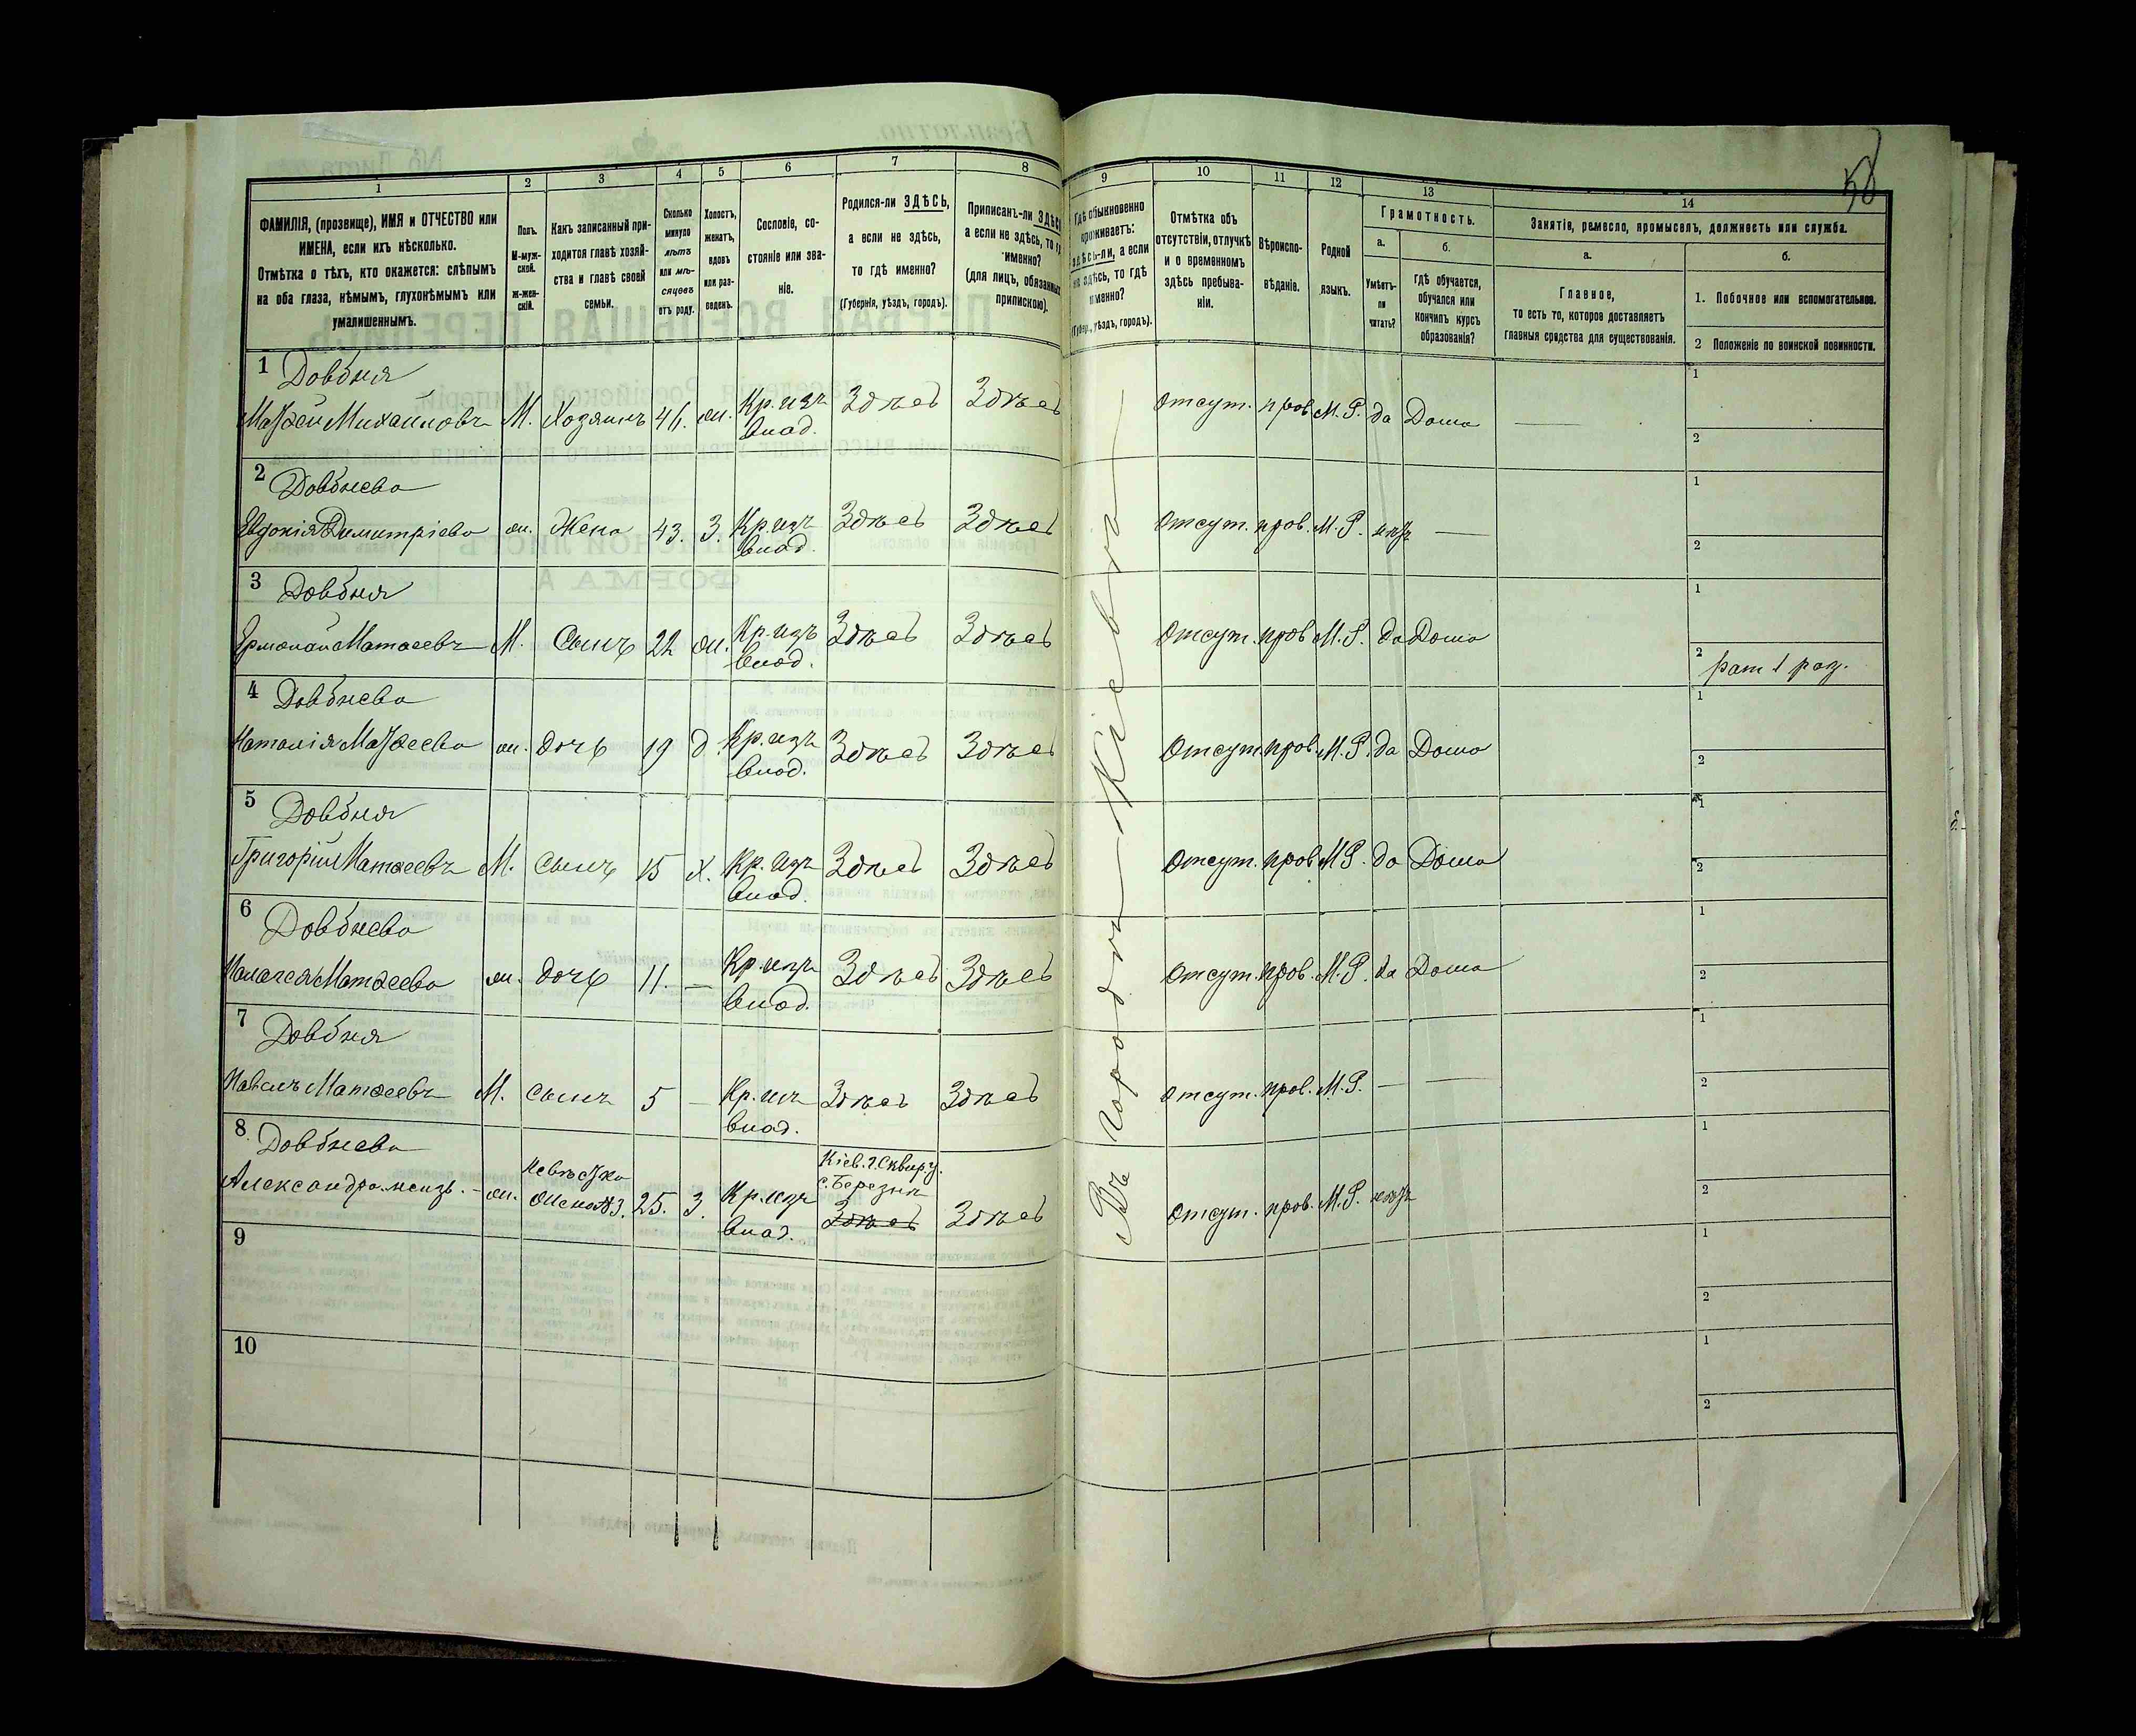 58
1 2 3 4 5 6 7 8 9 10 11 12 13 14
ФАМИЛІЯ, (прозвище), ИМЯ и ОТЧЕСТВО или
ИМЕНА, если ихъ нѣсколько.
Отмѣтка о тѣхъ, кто окажется: слѣпымъ
на оба глаза, нѣмымъ, глухонѣмымъ или
умалишеннымъ.
Полъ.
М-муж-
ской.
Ж-жен-
скій.
Какъ записанный при-
ходится главѣ хозяй-
ства и главѣ своей
семьи.
Сколько
минуло
лѣтъ
или мѣ-
сяцевъ
отъ роду.
Холостъ,
женатъ,
вдовъ
или раз-
веденъ.
Сословіе, со-
стояніе или зва-
ніе.
Родился-ли ЗДѢСЬ,
а если не здѣсь,
то гдѣ именно?
(Губернія, уѣздъ, городъ).
Приписанъ-ли ЗДѢСЬ
а если не здѣсь, то гдѣ
именно?
(для лицъ, обязанныхъ
припискою).
Гдѣ обыкновенно
проживаетъ:
здѣсь-ли, а если
не здѣсь, то гдѣ
именно?
(Губер., уѣздъ, городъ).
Отмѣтка объ
отсутствіи, отлучкѣ
и о временномъ
здѣсь пребыва-
ніи.
Вѣроиспо-
вѣданіе.
Родной
языкъ.
Грамотность.
а.
Умѣетъ-
ли
читать?
б.
Гдѣ обучается,
обучался или
кончилъ курсъ
образованія?
Занятіе, ремесло, промыселъ, должность или служба.
а.
Главное,
то есть то, которое доставляетъ
главныя средства для существованія.
б.
1. Побочное или вспомогательное.
2 Положеніе по воинской повинности.
Въ городѣ Кіевѣ
1 Довбня
Матѳей Михайловъ М. Хозяинъ 46. ж. Кр. изъ влад. Здѣсь Здѣсь Отсут. прав. М. Р. да Дома —
1
2
2 Довбнева
Евдокія Димитріева ж. Жена 43. З. Кр. изъ влад. Здѣсь Здѣсь Отсут. прав. М. Р. нѣтъ —
1
2
3 Довбня
Ермолай Матѳеевъ М. Сынъ 22 ж. Кр. изъ влад. Здѣсь Здѣсь Отсут. прав. М. Р. да Дома
1
2 рат 1 раз.
4 Довбнева
Наталія Матѳеева ж. дочь 19 д. Кр. изъ влад. Здѣсь Здѣсь Отсут. прав. М. Р. да Дома
1
2
5 Довбня
Григорій Матѳеевъ М. сынъ 15 х. Кр. изъ влад. Здѣсь Здѣсь Отсут. прав. М. Р. да Дома
1
2
6 Довбнева
Матѳеева ж. дочь 11. — Кр. изъ влад. Здѣсь Здѣсь Отсут. прав. М. Р. да Дома
1
2
7 Довбня
Павелъ Матѳеевъ М. сынъ 5 — Кр. изъ влад. Здѣсь Здѣсь Отсут. прав. М. Р. — —
1
2
8 Довбнева
Александра ж. невѣстка жена №3. 25. З. Кр. изъ влад. Кіев. г. Сквир. у. с. Березни Здѣсь Здѣсь Отсут. прав. М. Р. нѣтъ
1
2
9
1
2
10
1
2